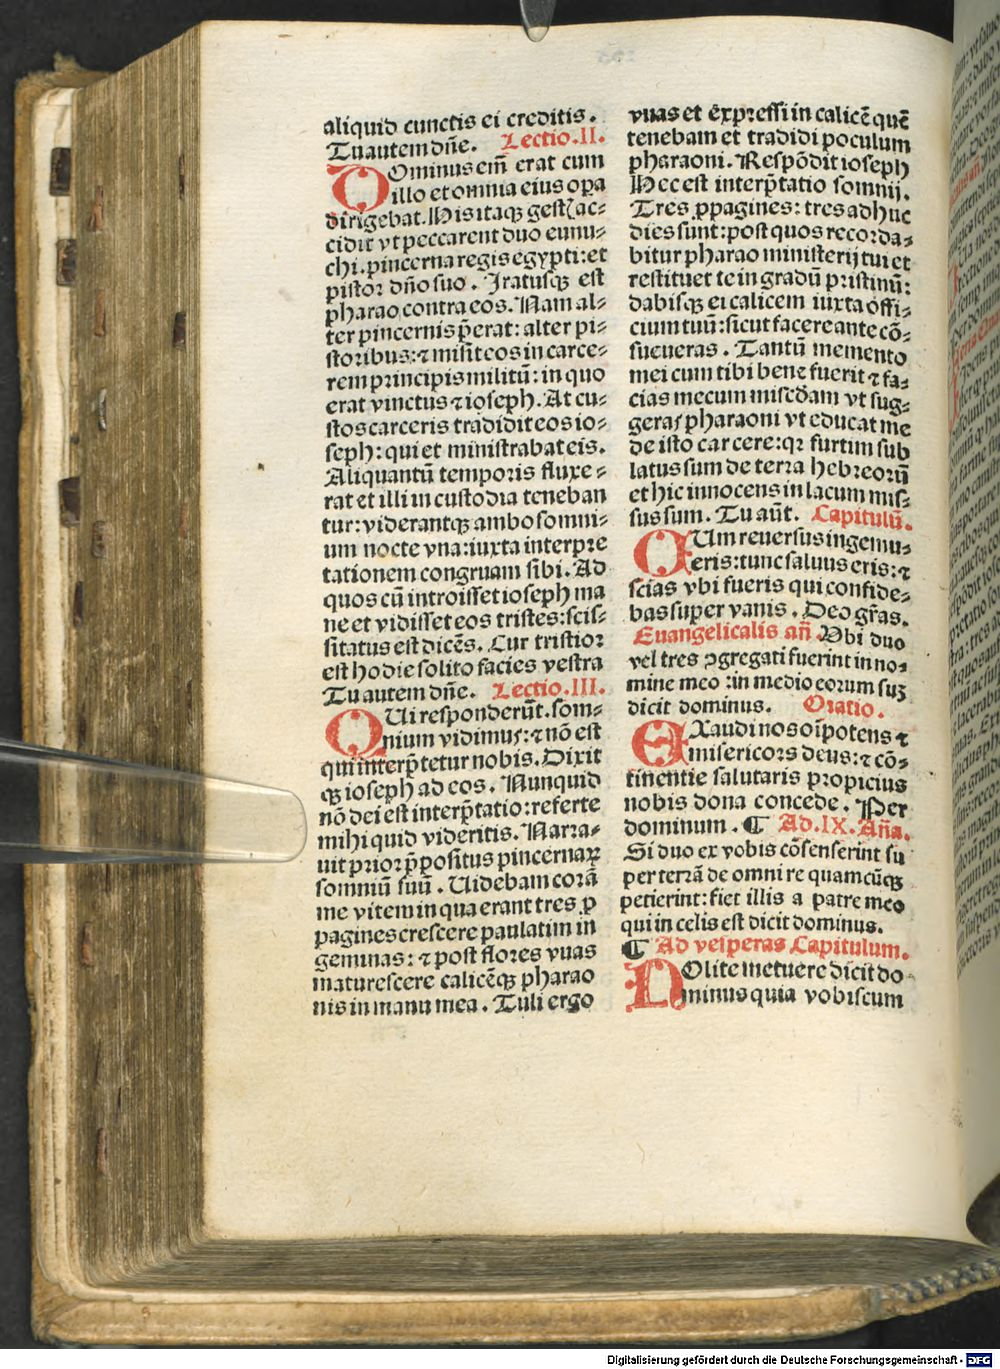 aliquid cunctis ei creditis.
Tu autem dñe. Lectio.II.
DOminus em̃ erat cum
illo et omnia eius oꝑa
dirigebat. His itaqꝫ gestꝭ ac⸗
cidit vt peccarent duo eunu⸗
chi. pincerna regis egypti: et
pistor dño suo. Iratusqꝫ est
pharao contra eos. Nam al⸗
ter pincernis p̃erat: alter pi⸗
storibus: ⁊ misit eos in carce⸗
rem principis militũ: in quo
erat vinctus ⁊ ioseph. At cu⸗
stos carceris tradidit eos io⸗
seph: qui et ministrabat eis.
Aliquantũ temporis fluxe⸗
rat et illi in custodia teneban
tur: viderantqꝫ ambo somni⸗
um nocte vna: iuxta interpre
tationem congruam sibi. Ad
quos cũ introisset ioseph ma
ne et vidisset eos tristes: scis⸗
sitatus est dicẽs. Cur tristior
est hodie solito facies vestra
Tu autem dñe. Lectio.III.
QUi responderũt. som⸗
nium vidimus: ⁊ nõ est
qui interp̃tetur nobis. Dixit
qꝫ ioseph ad eos. Nunquid
nõ dei est interp̃tatio: referte
mihi quid videritis. Narra⸗
uit prior p̃positus pincernaꝝ
somniũ suũ. Uidebam corã
me vitem in qua erant tres ꝓ
pagines crescere paulatim in
gemmas: ⁊ post flores vuas
maturescere calicẽqꝫ pharao
nis in manu mea. Tuli ergo
vuas et expressi in calicẽ quẽ
tenebam et tradidi poculum
pharaoni. Respõdit ioseph
Hec est interp̃tatio somnij.
Tres ꝓpagines: tres adhuc
dies sunt: post quos recorda⸗
bitur pharao ministerij tui et
restituet te in gradũ pristinũ:
dabisqꝫ ei calicem iuxta offi⸗
cium tuũ: sicut facere ante cõ⸗
sueueras. Tantũ memento
mei cum tibi bene fuerit ⁊ fa⸗
cias mecum miscd̃am vt sug⸗
geras pharaoni vt educat me
de isto carcere: qꝛ furtim sub
latus sum de terra hebreorũ
et hic innocens in lacum mis⸗
sus sum. Tu aũt. Capitulũ.
CUm reuersus ingemu⸗
eris: tunc saluus eris: ⁊
scias vbi fueris qui confide⸗
bas super vanis. Deo gr̃as.
Euangelicalis añ. Vbi duo
vel tres ꝯgregati fuerint in no⸗
mine meo: in medio eorum suꝫ
dicit dominus. Oratio.
EXaudi nos oĩpotens ⁊
misericors deus: ⁊ cõ⸗
tinentie salutaris propicius
nobis dona concede. Per
dominum. ¶ Ad.IX. Añа.
Si duo ex vobis cõsenserint su
per terrã de omni re quamcũqꝫ
petierint: fiet illis a patre meo
qui in celis est dicit dominus.
¶ Ad vesperas Capitulum.
NOlite metuere dicit do⸗
minus quia vobiscum
Digitalisierung gefördert durch die Deutsche Forschungsgemeinschaft - DFG